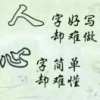 人
字好写
却难做
心
字简单
却难懂